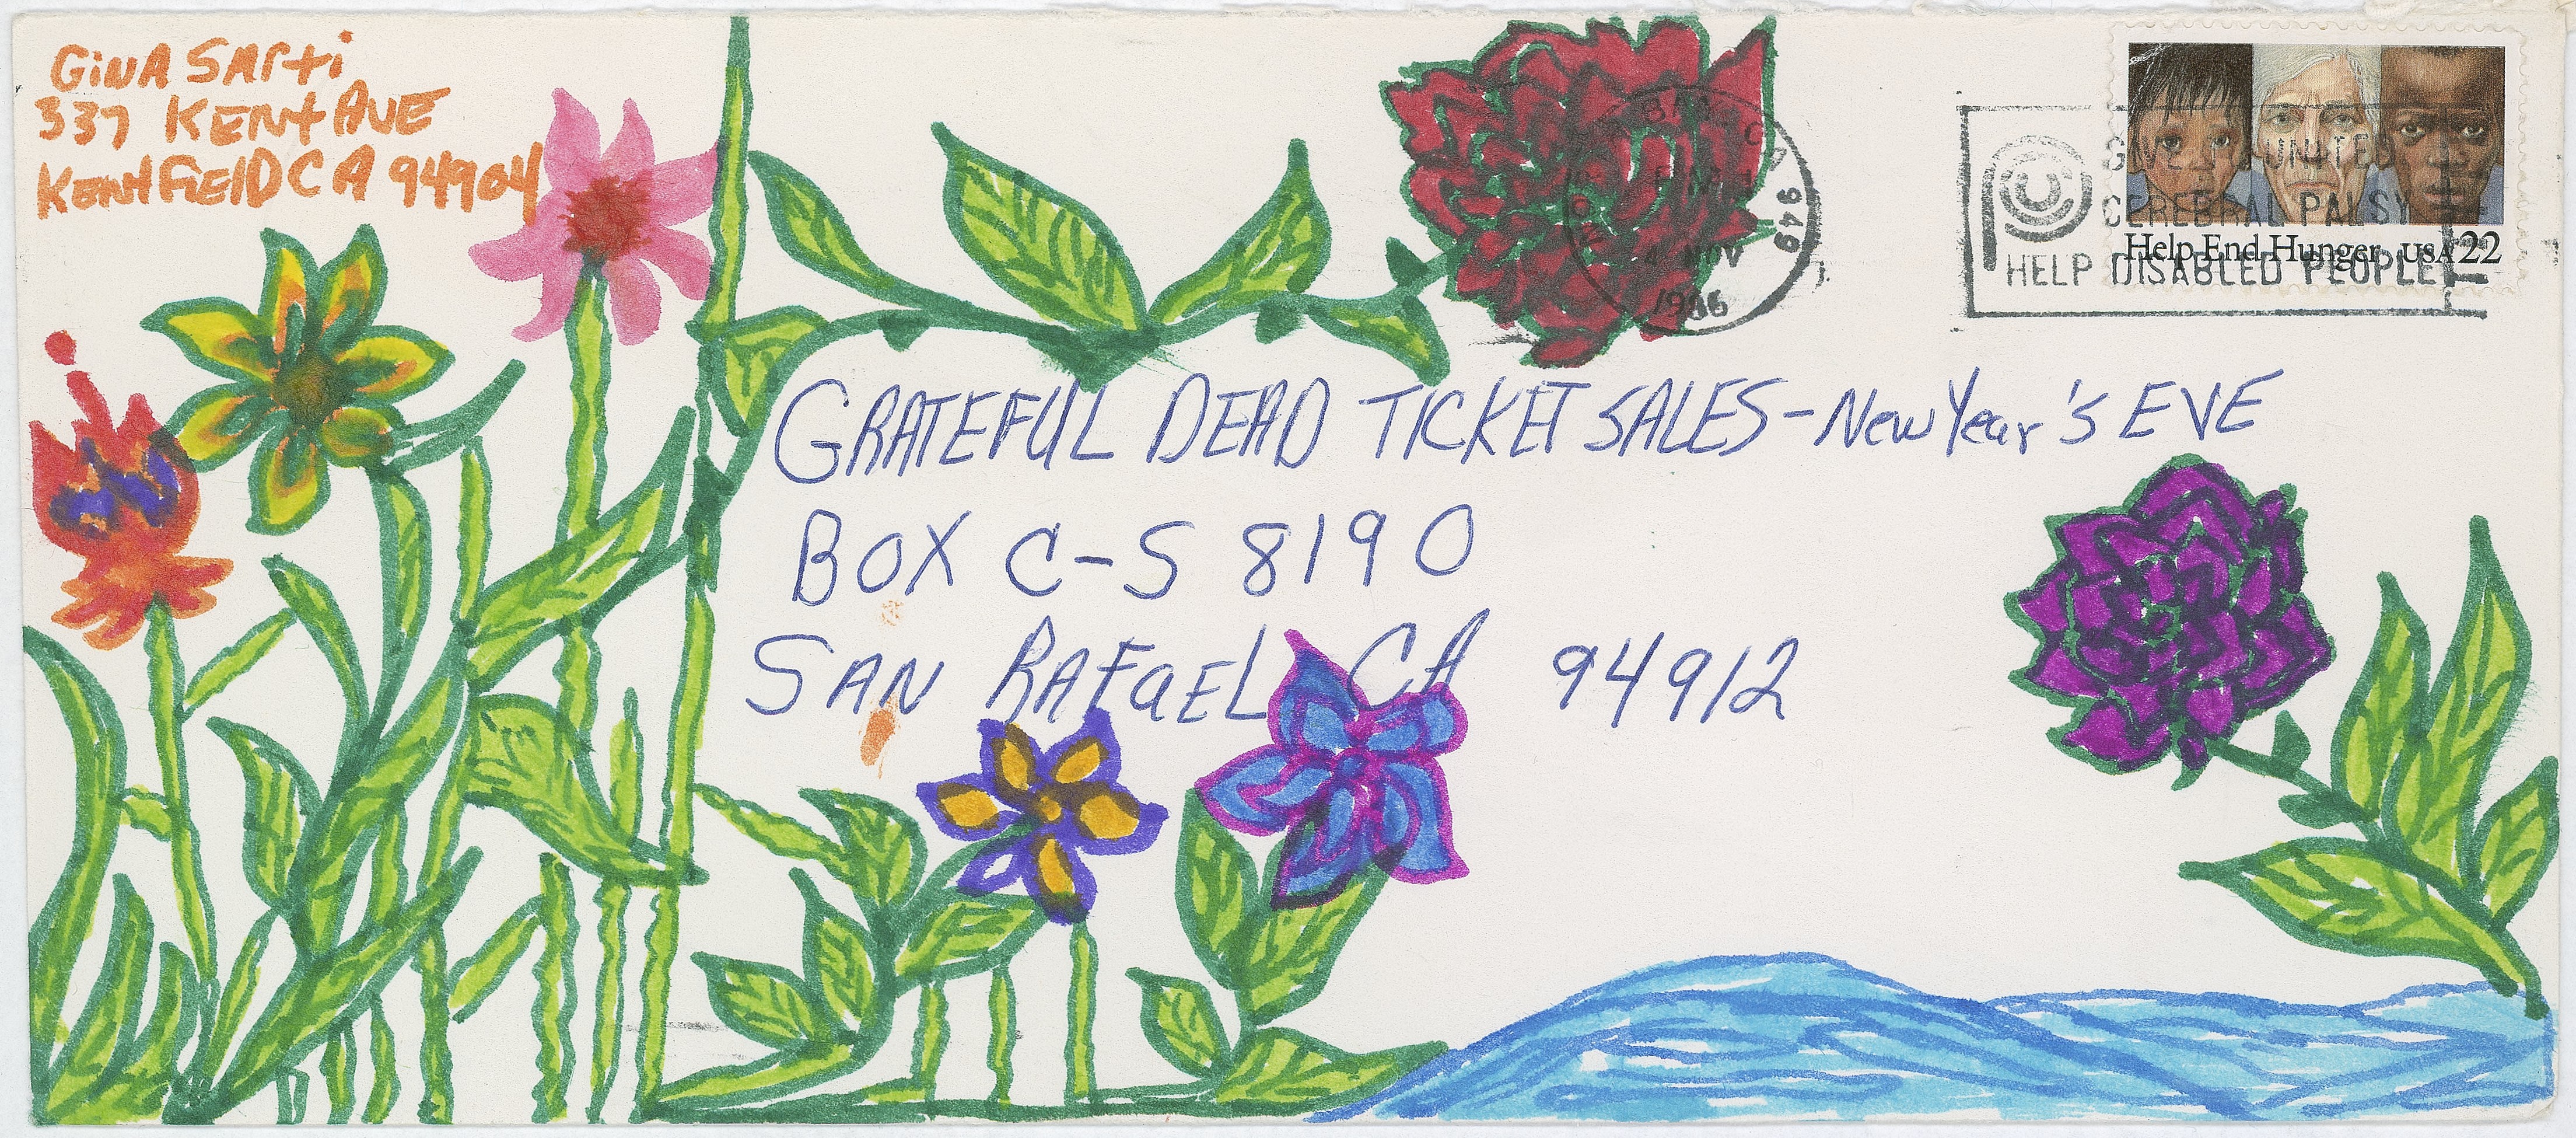 GiNA SArti
337 KENt AVE
KentFiElD CA 94904
Help End Hunger USA 22
GIVE TO UNITED
CEREBRAL PALSY
HELP DISABLED PEOPLE
CA 949
4 NOV
1986
GRATEFUL DEAD TICKET SALES - New Year's EVE
BOX C-S 8190
SAN RAFaEL CA 94912